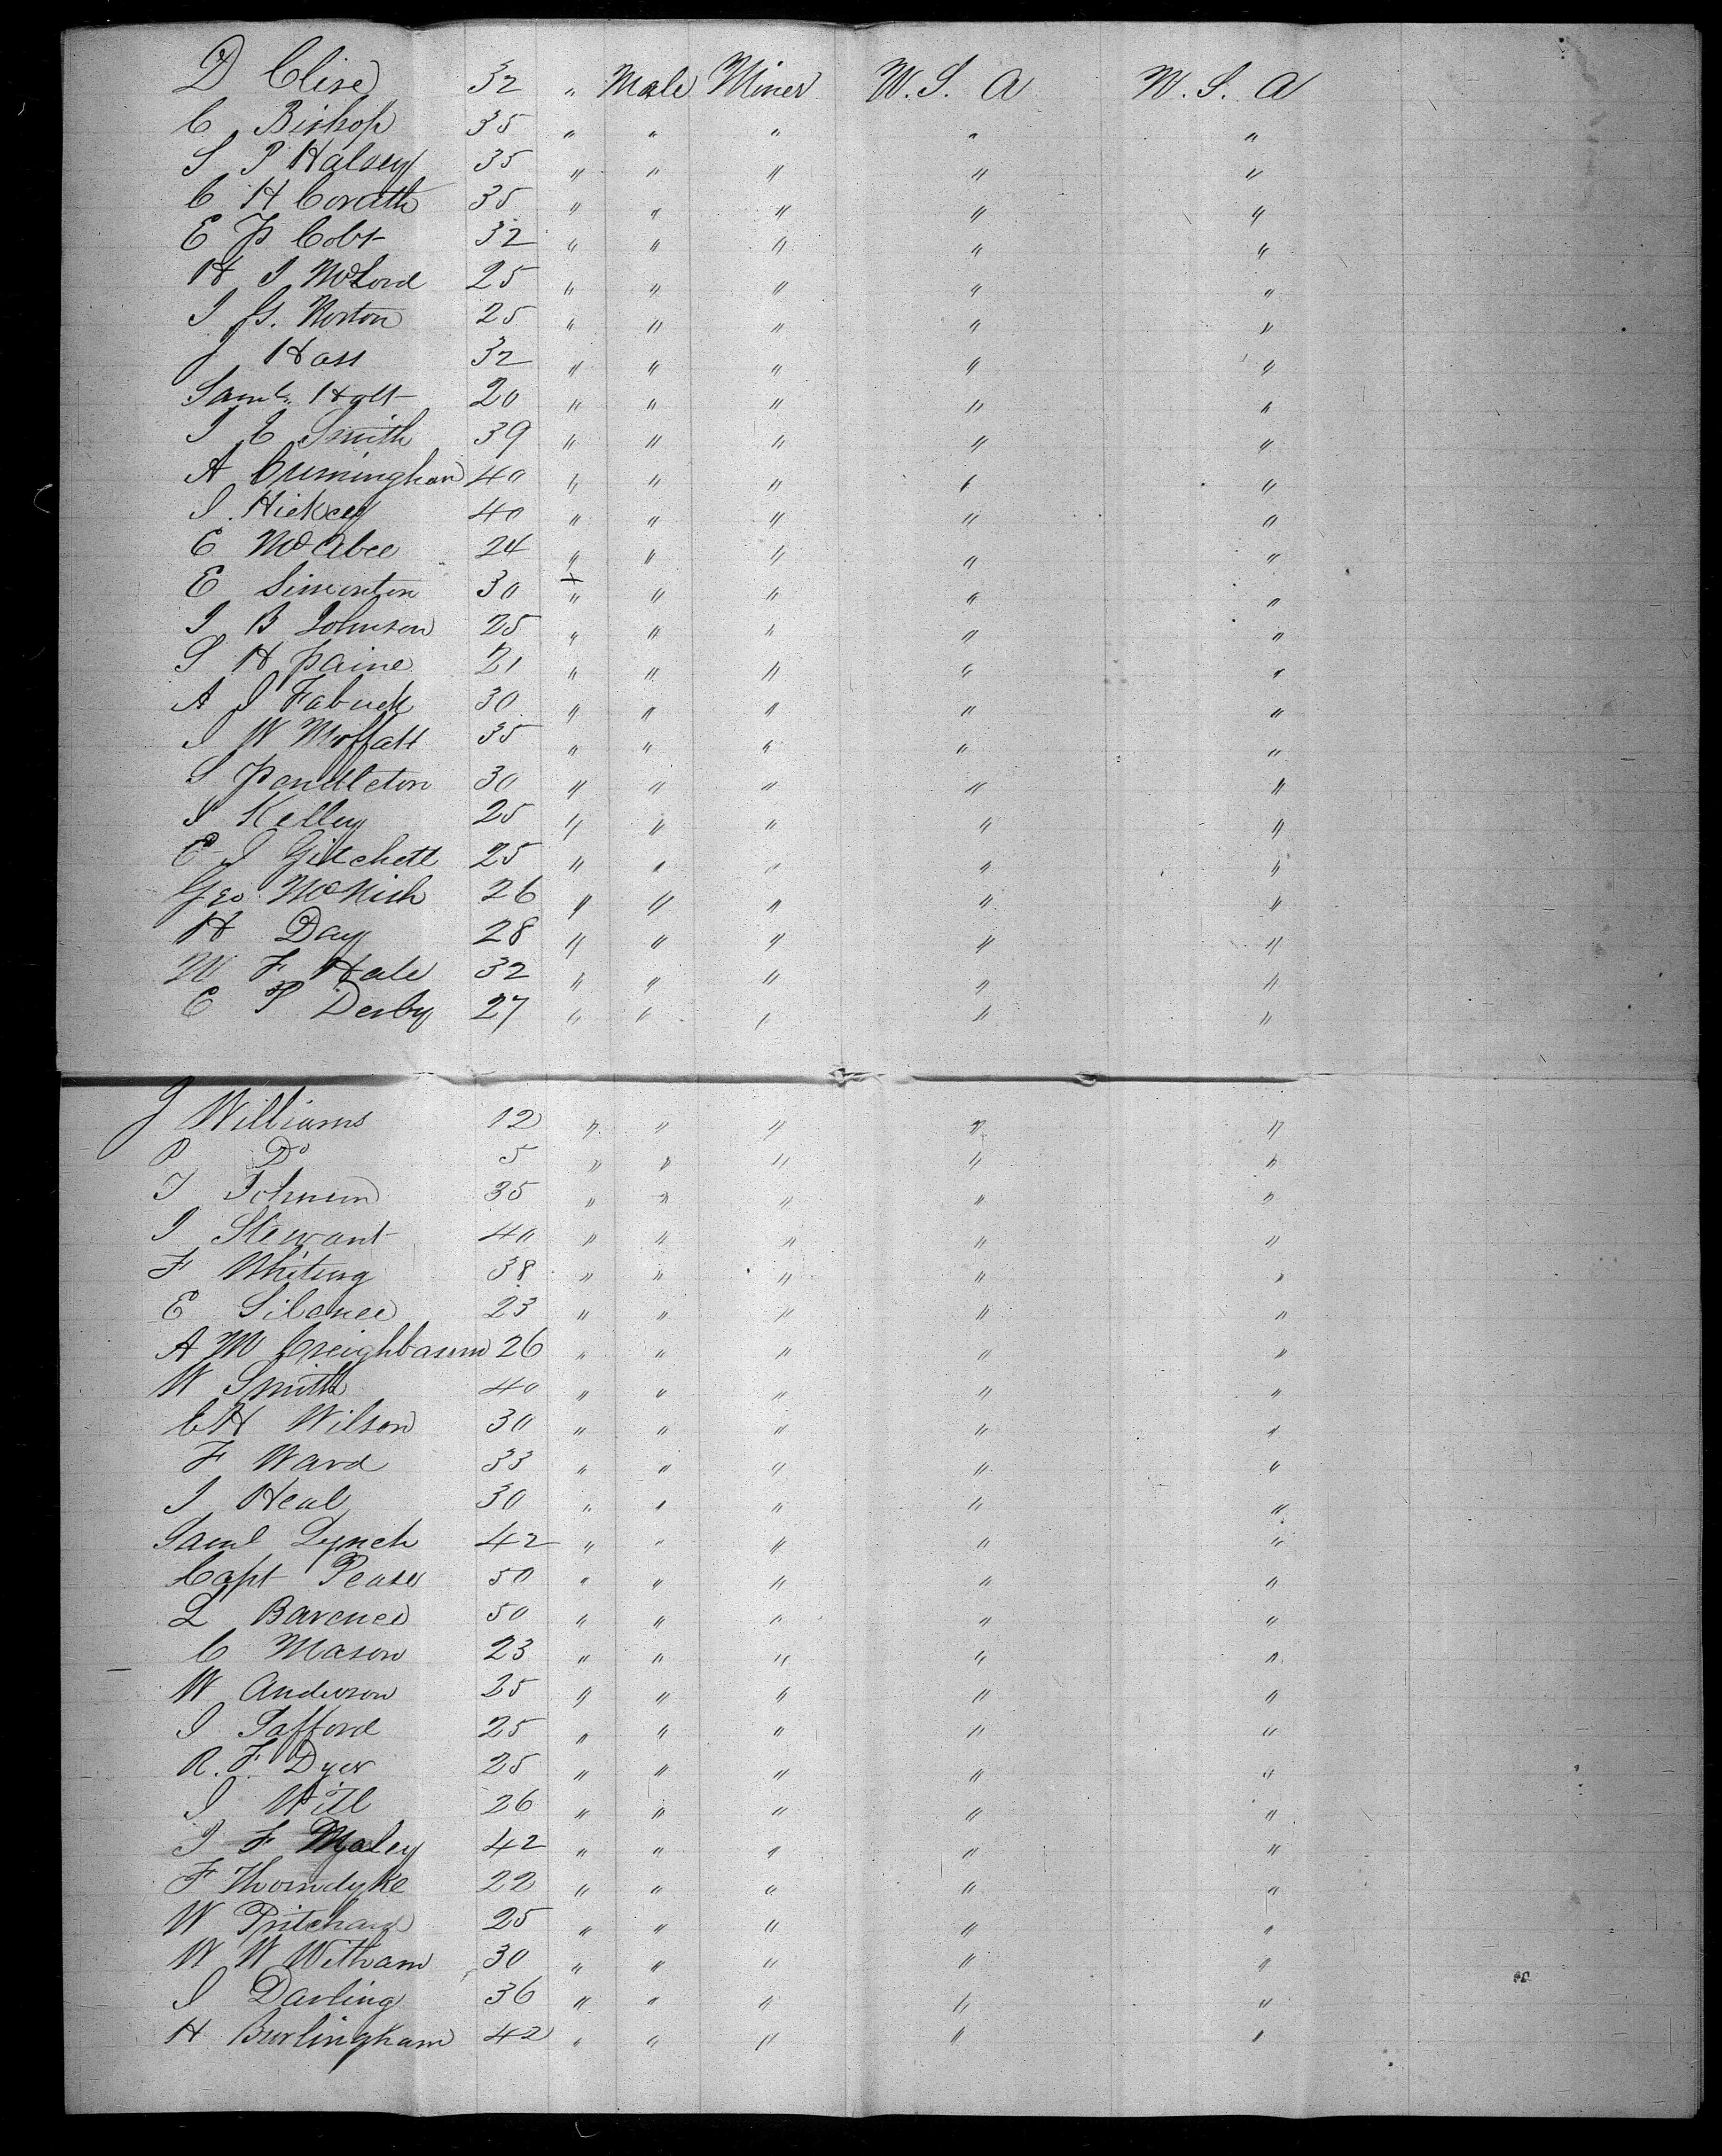 D Clise 32 " Male Miner U. S. A U. S. A
C Bishop 35 " " " " "
S P Halsey 35 " " " " "
C H Corath 35 " " " " "
E P Cobt 32 " " " " "
H I McLord 25 " " " " "
I G. Norton 25 " " " " "
J Hass 32 " " " " "
Saml. Holt 20 " " " " "
I C Smith 39 " " " " "
A Cunningham 40 " " " " "
I. Hickey 40 " " " " "
E McAbee 24 " " " " "
E Simonton 30 " " " " "
I B Johnson 25 " " " " "
S H Paine 21 " " " " "
A I Fabuck 30 " " " " "
I W Moffatt 35 " " " " "
S Pendleton 30 " " " " "
S Kelley 25 " " " " "
E I Gitchett 25 " " " " "
Geo McNish 26 " " " " "
H Day 28 " " " " "
W F Hale 32 " " " " "
C P Derby 27 " " " " "
J Williams 12 " " " " "
P Do 5 " " " " "
I Johnson 35 " " " " "
I Stewart 40 " " " " "
F Whiting 38 " " " " "
E Silance 23 " " " " "
A M Creighbaum 26 " " " " "
W Smith 40 " " " " "
C H Wilson 30 " " " " "
F Ward 33 " " " " "
I Heal 30 " " " " "
Saml Lynch 42 " " " " "
Capt Pease 50 " " " " "
L Barence 50 " " " " "
C Mason 23 " " " " "
W Anderson 25 " " " " "
I Safford 25 " " " " "
R. F. Dyer 25 " " " " "
I Will 26 " " " " "
I F Maley 42 " " " " "
F Thorndyke 22 " " " " "
W Pritchard 25 " " " " "
W W Witham 30 " " " " "
I Darling 36 " " " " "
H Burlingham 42 " " " " "